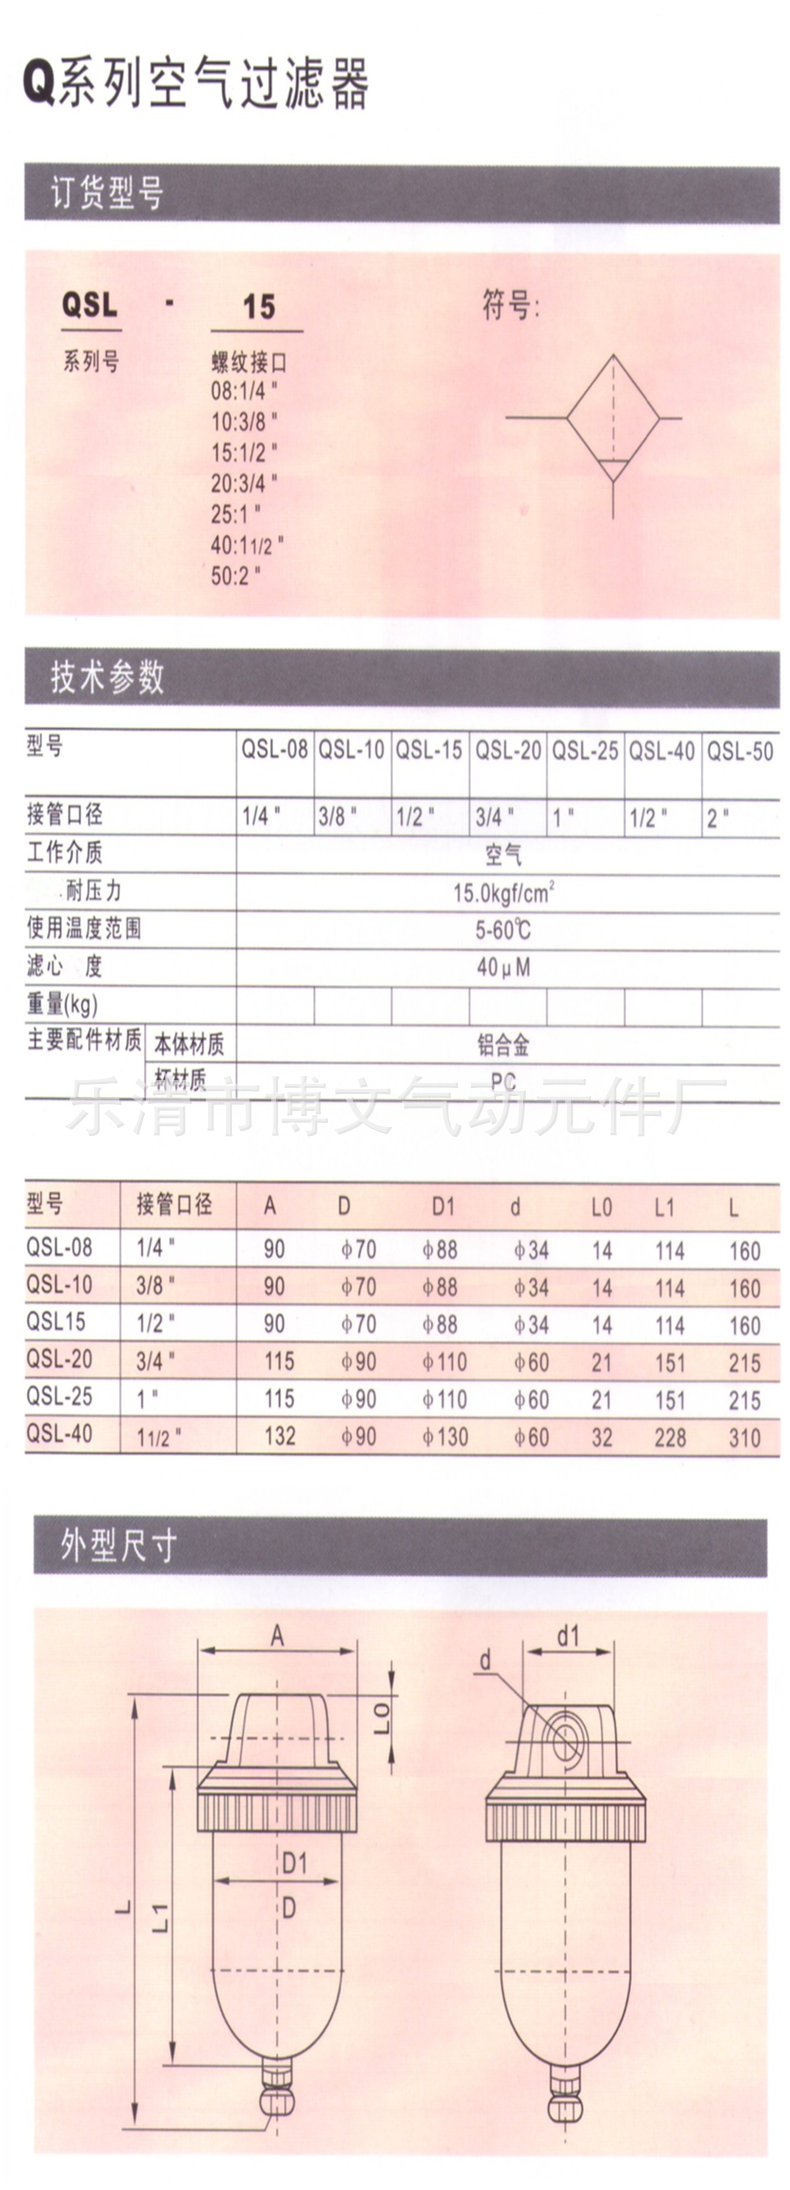 Q系列空气过滤器
订货型号
QSL - 15
系列号 螺纹接口
08:1/4 "
10:3/8 "
15:1/2 "
20:3/4 "
25:1 "
40:11/2 "
50:2 "
符号:
技术参数
型号 QSL-08 QSL-10 QSL-15 QSL-20 QSL-25 QSL-40 QSL-50
接管口径 1/4 " 3/8 " 1/2 " 3/4 " 1 " 1/2 " 2 "
工作介质 空气
耐压力 15.0kgf/cm²
使用温度范围 5-60℃
滤心 度 40μM
重量(kg)
主要配件材质 本体材质 铝合金
杯材质 PC
乐清市博文气动元件厂
型号 接管口径 A D D1 d L0 L1 L
QSL-08 1/4 " 90 φ70 φ88 φ34 14 114 160
QSL-10 3/8 " 90 φ70 φ88 φ34 14 114 160
QSL15 1/2 " 90 φ70 φ88 φ34 14 114 160
QSL-20 3/4 " 115 φ90 φ110 φ60 21 151 215
QSL-25 1 " 115 φ90 φ110 φ60 21 151 215
QSL-40 11/2 " 132 φ90 φ130 φ60 32 228 310
外型尺寸
A
L0
L
L1
D1
D
d
d1